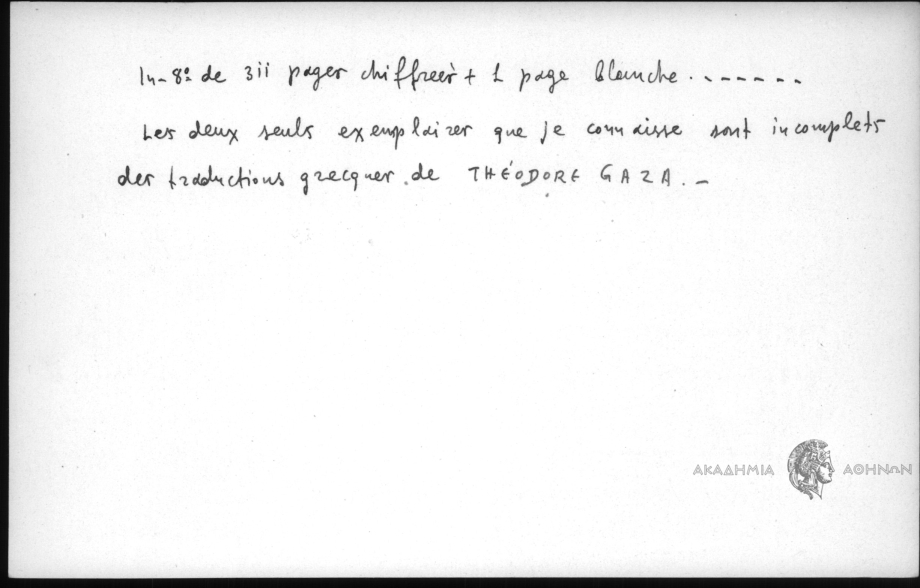 In-8º de 3ii pages chiffreès + 1 page blanche.......
Les deux seuls exemplaires que je connaisse sont incomplets
des traductions grecques de THÉODORE GAZA. –
ΑΚΑΔΗΜΙΑ ΑΘΗΝΩΝ